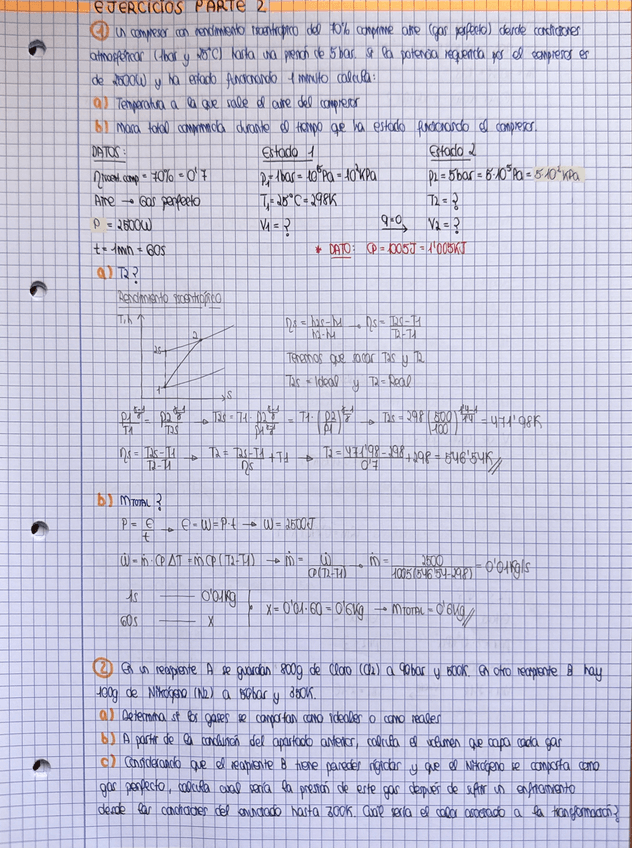 EJERCICIOS PARTE 2
1 Un compresor con rendimiento isentrópico del 70% comprime aire (gas perfecto) desde condiciones
atmosféricas (1bar y 25°C) hasta una presión de 5 bar. Si la potencia requerida por el compresor es
de 2500W y ha estado funcionando 1 minuto calcula:
a) Temperatura a la que sale el aire del compresor
b) Masa total comprimida durante el tiempo que ha estado funcionando el compresor.
DATOS: Estado 1 Estado 2
ηisoent.comp = 70% = 0'7 P1 = 1bar = 10⁵Pa = 10²kPa P2 = 5bar = 5·10⁵Pa = 5·10²kPa
Aire → Gas perfecto T1 = 25°C = 298K T2 = ?
P = 2500W V1 = ? q=0 → V2 = ?
t = 1min = 60s * DATO: CP = 1005J = 1'005KJ
a) T2?
Rendimiento isentrópico
T,h 2s 2 1 s
ηs = h2s-h1/h2-h1 · ηs = T2s-T1/T2-T1
Tenemos que sacar T2s y T2
T2s = Ideal y T2 = Real
P1^(γ-1/γ)/T1 = P2^(γ-1/γ)/T2s → T2s = T1 · P2^(γ-1/γ)/P1^(γ-1/γ) = T1 · (P2/P1)^(γ-1/γ) → T2s = 298 (500/100)^(1'4-1/1'4) = 471'98K
ηs = T2s-T1/T2-T1 → T2 = T2s-T1/ηs + T1 → T2 = 471'98-298/0'7 + 298 = 546'54K//
b) MTOTAL ?
P = E/t → E = W = P·t → W = 2500J
Ẇ = ṁ·CP ΔT = ṁ CP (T2-T1) → ṁ = Ẇ/CP(T2-T1) · ṁ = 2500/1005(546'54-298) = 0'01Kg/s
1s —— 0'01Kg
60s —— x
x = 0'01·60 = 0'6Kg → MTOTAL = 0'6Kg//
2 En un recipiente A se guardan 800g de Cloro (Cl2) a 90bar y 500K. En otro recipiente B hay
100g de Nitrógeno (N2) a 50bar y 350K.
a) Determina si los gases se comportan como ideales o como reales
b) A partir de la conclusión del apartado anterior, calcula el volumen que ocupa cada gas
c) Considerando que el recipiente B tiene paredes rígidas y que el Nitrógeno se comporta como
gas perfecto, calcula cual sería la presión de este gas después de sufrir un enfriamiento
desde las condiciones del enunciado hasta 300K. Cual sería el calor asociado a la transformación?